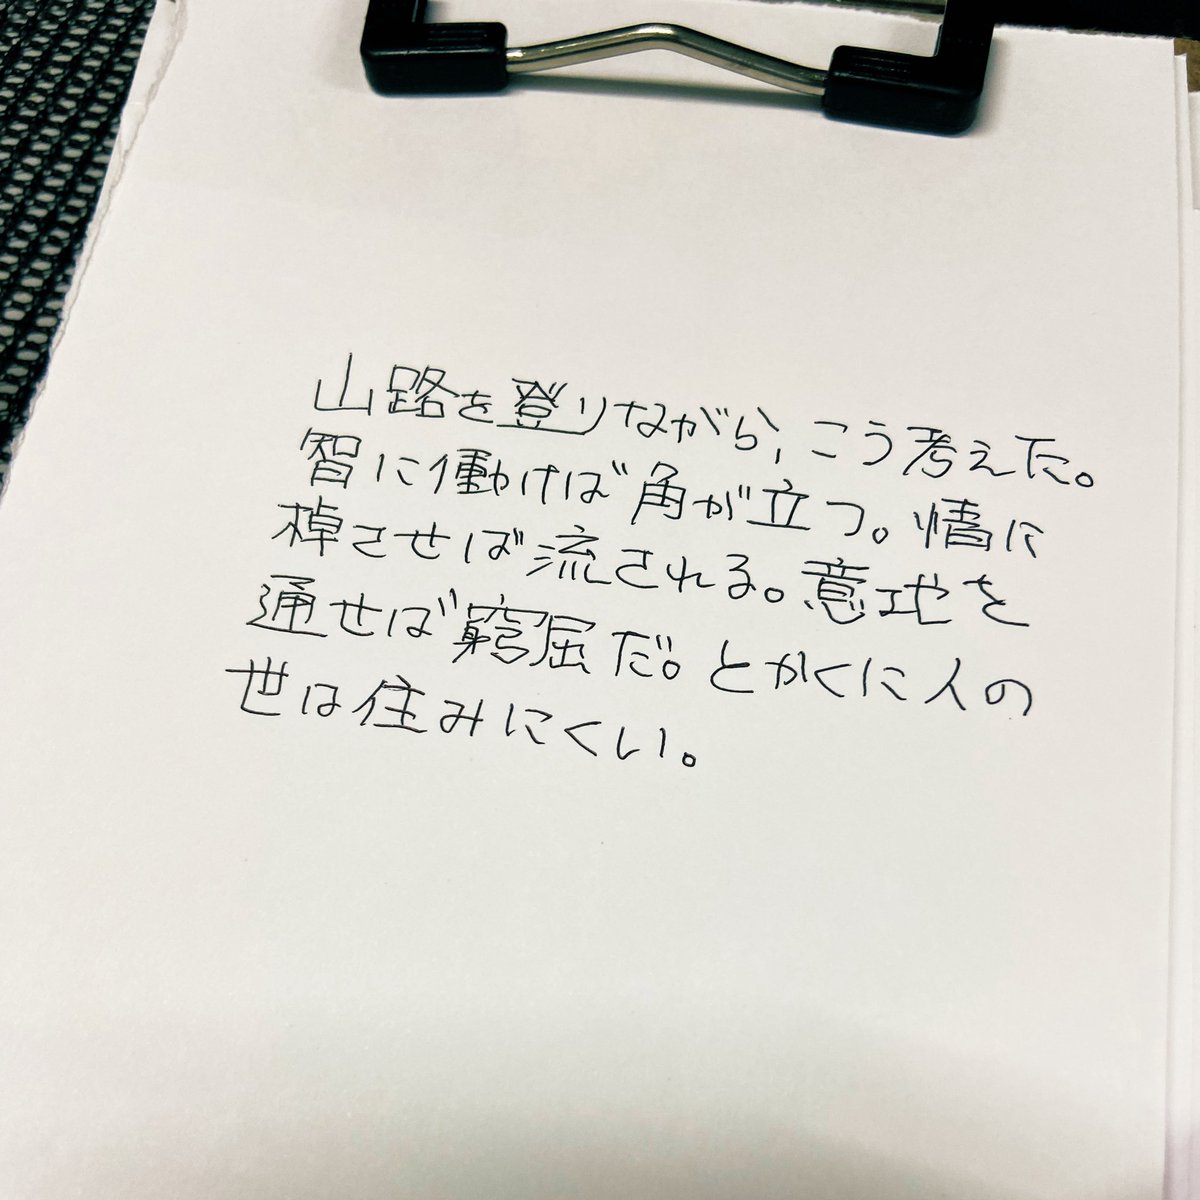 山路を登りながら、こう考えた。
智に働けば角が立つ。情に
棹させば流される。意地を
通せば窮屈だ。とかくに人の
世は住みにくい。